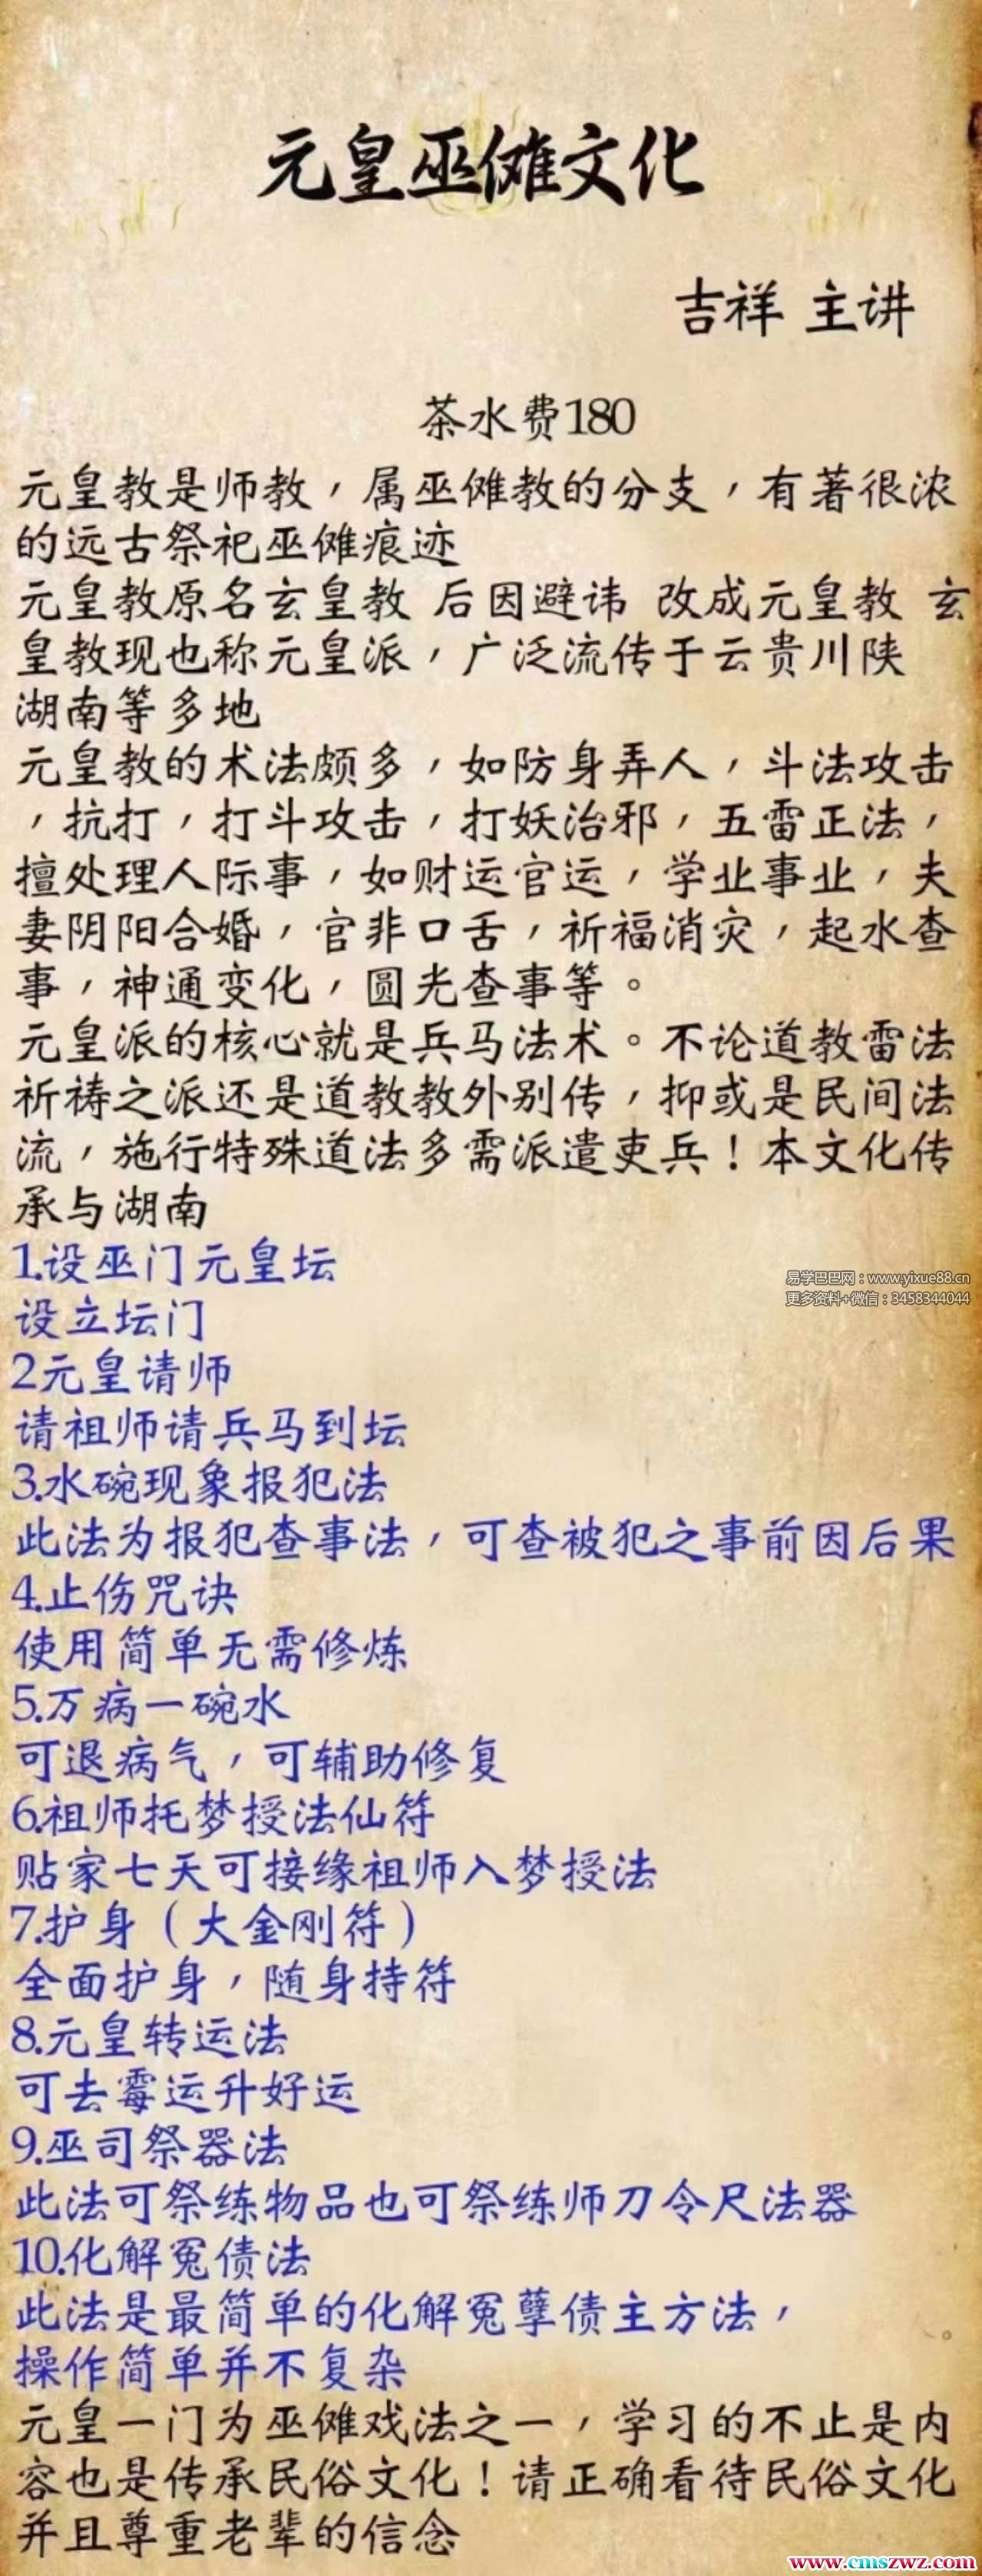 元皇巫傩文化
吉祥 主讲
茶水费180
元皇教是师教，属巫傩教的分支，有著很浓
的远古祭祀巫傩痕迹
元皇教原名玄皇教 后因避讳 改成元皇教 玄
皇教现也称元皇派，广泛流传于云贵川陕
湖南等多地
元皇教的术法颇多，如防身弄人，斗法攻击
，抗打，打斗攻击，打妖治邪，五雷正法，
擅处理人际事，如财运官运，学业事业，夫
妻阴阳合婚，官非口舌，祈福消灾，起水查
事，神通变化，圆光查事等。
元皇派的核心就是兵马法术。不论道教雷法
祈祷之派还是道教教外别传，抑或是民间法
流，施行特殊道法多需派遣吏兵！本文化传
承与湖南
1.设巫门元皇坛
易学巴巴网：www.yixue88.cn
更多资料+微信：3458344044
设立坛门
2元皇请师
请祖师请兵马到坛
3.水碗现象报犯法
此法为报犯查事法，可查被犯之事前因后果
4.止伤咒诀
使用简单无需修炼
5.万病一碗水
可退病气，可辅助修复
6.祖师托梦授法仙符
贴家七天可接缘祖师入梦授法
7.护身（大金刚符）
全面护身，随身持符
8.元皇转运法
可去霉运升好运
9.巫司祭器法
此法可祭练物品也可祭练师刀令尺法器
10.化解冤债法
此法是最简单的化解冤孽债主方法，
操作简单并不复杂
元皇一门为巫傩戏法之一，学习的不止是内
容也是传承民俗文化！请正确看待民俗文化
并且尊重老辈的信念
www.cmszwz.com